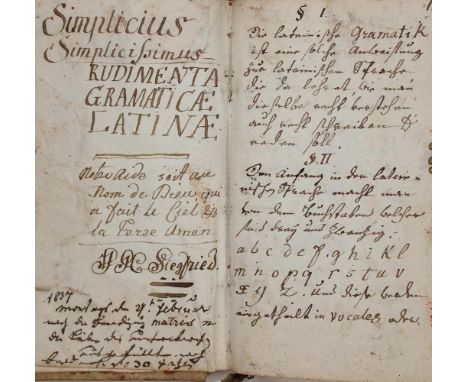 Simplicius
Simplicissimus
RUDIMENTA
GRAMATICÆ
LATINÆ
Notre Aide soit au
Nom de Dieu qui
a fait le Ciel &
la Terre Amen
Siegfried
1837
Februar
§ I.
Die lateinische Gramatik
ist eine solche Anweisung
zur lateinischen Sprache
die da lehret wie man
dieselbe recht verstehen
auch recht schreiben &
reden soll.
§. II
Den Anfang in der latein-
ischen Sprache macht man
von den Buchstaben welcher
sind drey und zwanzig.
a b c d e f. g h i k l
m n o p q r s t u v
x y z. Und diese werden
eingetheilt in vocales oder